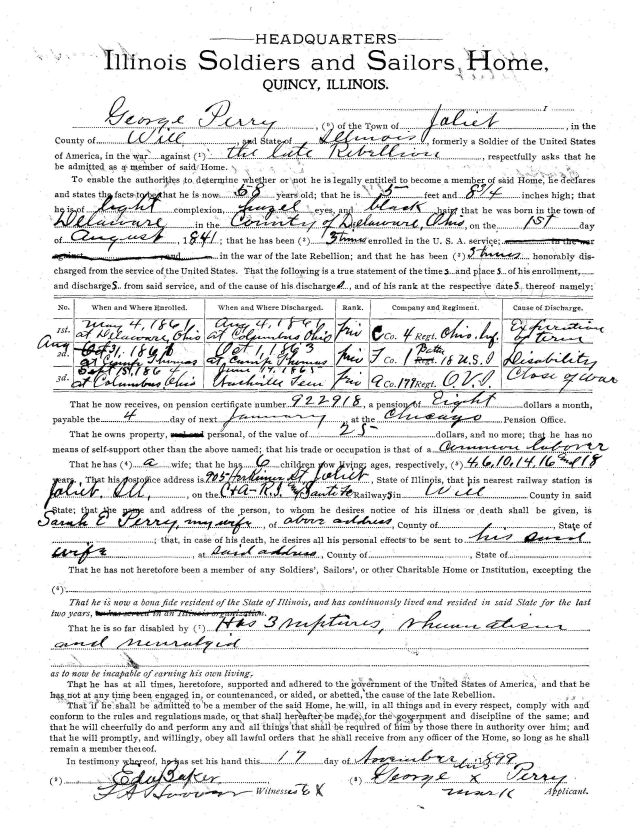 HEADQUARTERS
Illinois Soldiers and Sailors Home,
QUINCY, ILLINOIS.
George Perry, (²) of the Town of Joliet, in the
County of Will, and State of Illinois, formerly a Soldier of the United States
of America, in the war against (¹) the late Rebellion, respectfully asks that he
be admitted as a member of said Home.
To enable the authorities to determine whether or not he is legally entitled to become a member of said Home, he declares
and states the facts to be that he is now 58 years old; that he is 5 feet and 8 3/4 inches high; that
he is of light complexion, hazel eyes, and black hair; that he was born in the town of
Delaware in the County of Delaware, Ohio, on the 1st day
of August, 1841; that he has been (²) 3 times enrolled in the U. S. A. service; in the war
against and in the war of the late Rebellion; and that he has been (²) 3 times honorably dis-
charged from the service of the United States. That the following is a true statement of the times and places of his enrollment,
and discharges from said service, and of the cause of his discharge, and of his rank at the respective dates thereof namely:
No. When and Where Enrolled. When and Where Discharged. Rank. Company and Regiment. Cause of Discharge.
1st. May 4, 1861 at Delaware, Ohio Aug 4, 186 at Columbus Ohio Priv C Co. 4 Regt. Ohio Inf. Expiration of term
2d. Aug Oct 31, 186 at Camp Thomas Oct 1, 1863 at Camp Thomas Priv F Co. 1 Batt 18 U.S.I Disability
3d. Sept 1st 1864 at Columbus Ohio June 14, 1865 Nashville Tenn Priv a Co. 178 Regt. O.V.I. Close of War
That he now receives, on pension certificate number 922918, a pension of Eight dollars a month,
payable the 4 day of next January at the Chicago Pension Office.
That he owns property, real and personal, of the value of 25 dollars, and no more; that he has no
means of self-support other than the above named; that his trade or occupation is that of a Common laborer
That he has (⁵) a wife; that he has 6 children now living; ages, respectively, (⁵) 4, 6, 10, 14, 16 and 18
years. That his postoffice address is 905 St Joliet, State of Illinois, that his nearest railway station is
Joliet, Ill, on the C & A - R.I. & Santa Fe Railways in Will County in said
State; that the name and address of person, to whom he desires notice of his illness or death shall be given, is
Sarah E Perry, my wife, of above address, County of , State of
; that, in case of his death, he desires all his personal effects to be sent to his said
wife, at said address, County of , State of
That he has not heretofore been a member of any Soldiers', Sailors', or other Charitable Home or Institution, excepting the
(⁶)
That he is now a bona fide resident of the State of Illinois, and has continuously lived and resided in said State for the last
two years, or has served in an Illinois organization.
That he is so far disabled by (⁷) Has 3 ruptures, rheumatism
and neuralgia
as to now be incapable of earning his own living.
That he has at all times, heretofore, supported and adhered to the government of the United States of America, and that he
has not at any time been engaged in, or countenanced, or aided, or abetted, the cause of the late Rebellion.
That if he shall be admitted to be a member of the said Home, he will, in all things and in every respect, comply with and
conform to the rules and regulations made, or that shall hereafter be made, for the government and discipline of the same; and
that he will cheerfully do and perform any and all things that shall be required of him by those there in authority over him; and
that he will promptly, and willingly, obey all lawful orders that he shall receive from any officer of the Home, so long as he shall
remain a member thereof.
In testimony whereof, he has set his hand this 17 day of November 1899
(⁹) Edw Baker (⁸) George x his Perry
Witnesses to X mark Applicant.